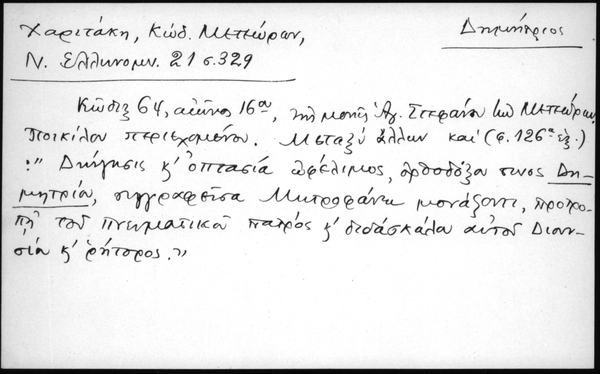 Χαριτάκη, Κώδ. Μετεώρων,
Δημήτριος
Ν. Ελληνομν. 21 σ. 329
Κῶδιξ 64, αἰῶνος 16ου, τῆς μονῆς Ἁγ. Στεφάνου τῶν Μετεώρων,
Ποικίλου περιεχομένου. Μεταξὺ ἄλλων καὶ (φ. 126α ἑξ.)
:" Διήγησις κ' ὀπτασία ὠφέλιμος, ὀρθοδόξου τινος Δη-
μητρίου, συγγραφεῖσα Μητροφάνῃ μονάζοντι, προτρο-
πῇ τοῦ πνευματικοῦ πατρός κ' διδασκάλου αὐτοῦ Διονυ-
σίου κ' ῥήτορος."